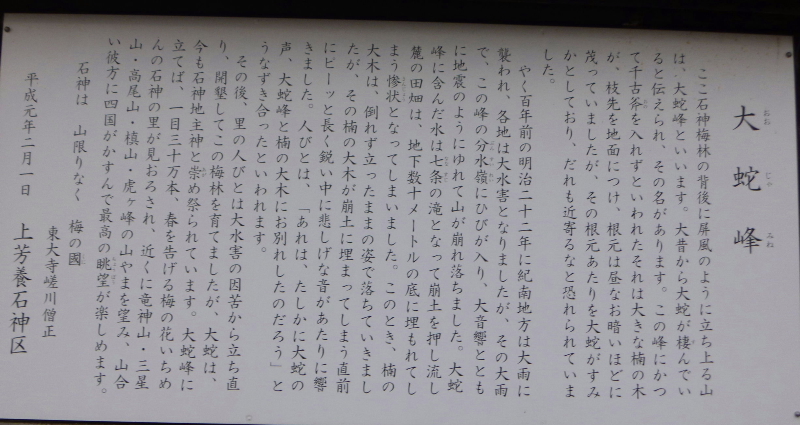 大蛇峰
ここ石神梅林の背後に屏風のように立ち上る山
は、大蛇峰といいます。大昔から大蛇が棲んでい
ると伝えられ、その名があります。この峰にかつ
て千古斧を入れずといわれたそれは大きな楠の木
が、枝先を地面につけ、根元は昼なお暗いほどに
茂っていましたが、その根元あたりを大蛇がすみ
かとしており、だれも近寄るなと恐れられていま
した。
やく百年前の明治二十二年に紀南地方は大雨に
襲われ、各地は大水害となりましたが、その大雨
で、この峰の分水嶺にひびが入り、大音響ととも
に地震のようにゆれて山が崩れ落ちました。大蛇
峰に含んだ水は七条の滝となって崩土を押し流し
麓の田畑は、地下数十メートルの底に埋もれてし
まう惨状となってしまいました。このとき、楠の
大木は、倒れず立ったままの姿で落ちていきまし
たが、その楠の大木が崩土に埋まってしまう直前
にピーッと長く鋭い中に悲しげな音があたりに響
きました。人びとは、「あれは、たしかに大蛇の
声、大蛇峰と楠の大木にお別れしたのだろう」と
うなずき合ったといわれます。
その後、里の人びとは大水害の困苦から立ち直
り、開墾してこの梅林を育てましたが、大蛇は、
今も石神地主神と崇め祭られています。大蛇峰に
立てば、一目三十万本、春を告げる梅の花いちめ
んの石神の里が見おろされ、近くに竜神山・三星
山・高尾山・槙山・虎ヶ峰の山やまを望み、山合
い彼方に四国がかすんで最高の眺望が楽しめます。
石神は 山限りなく 梅の國
東大寺嵯川僧正
平成元年二月一日 上芳養石神区